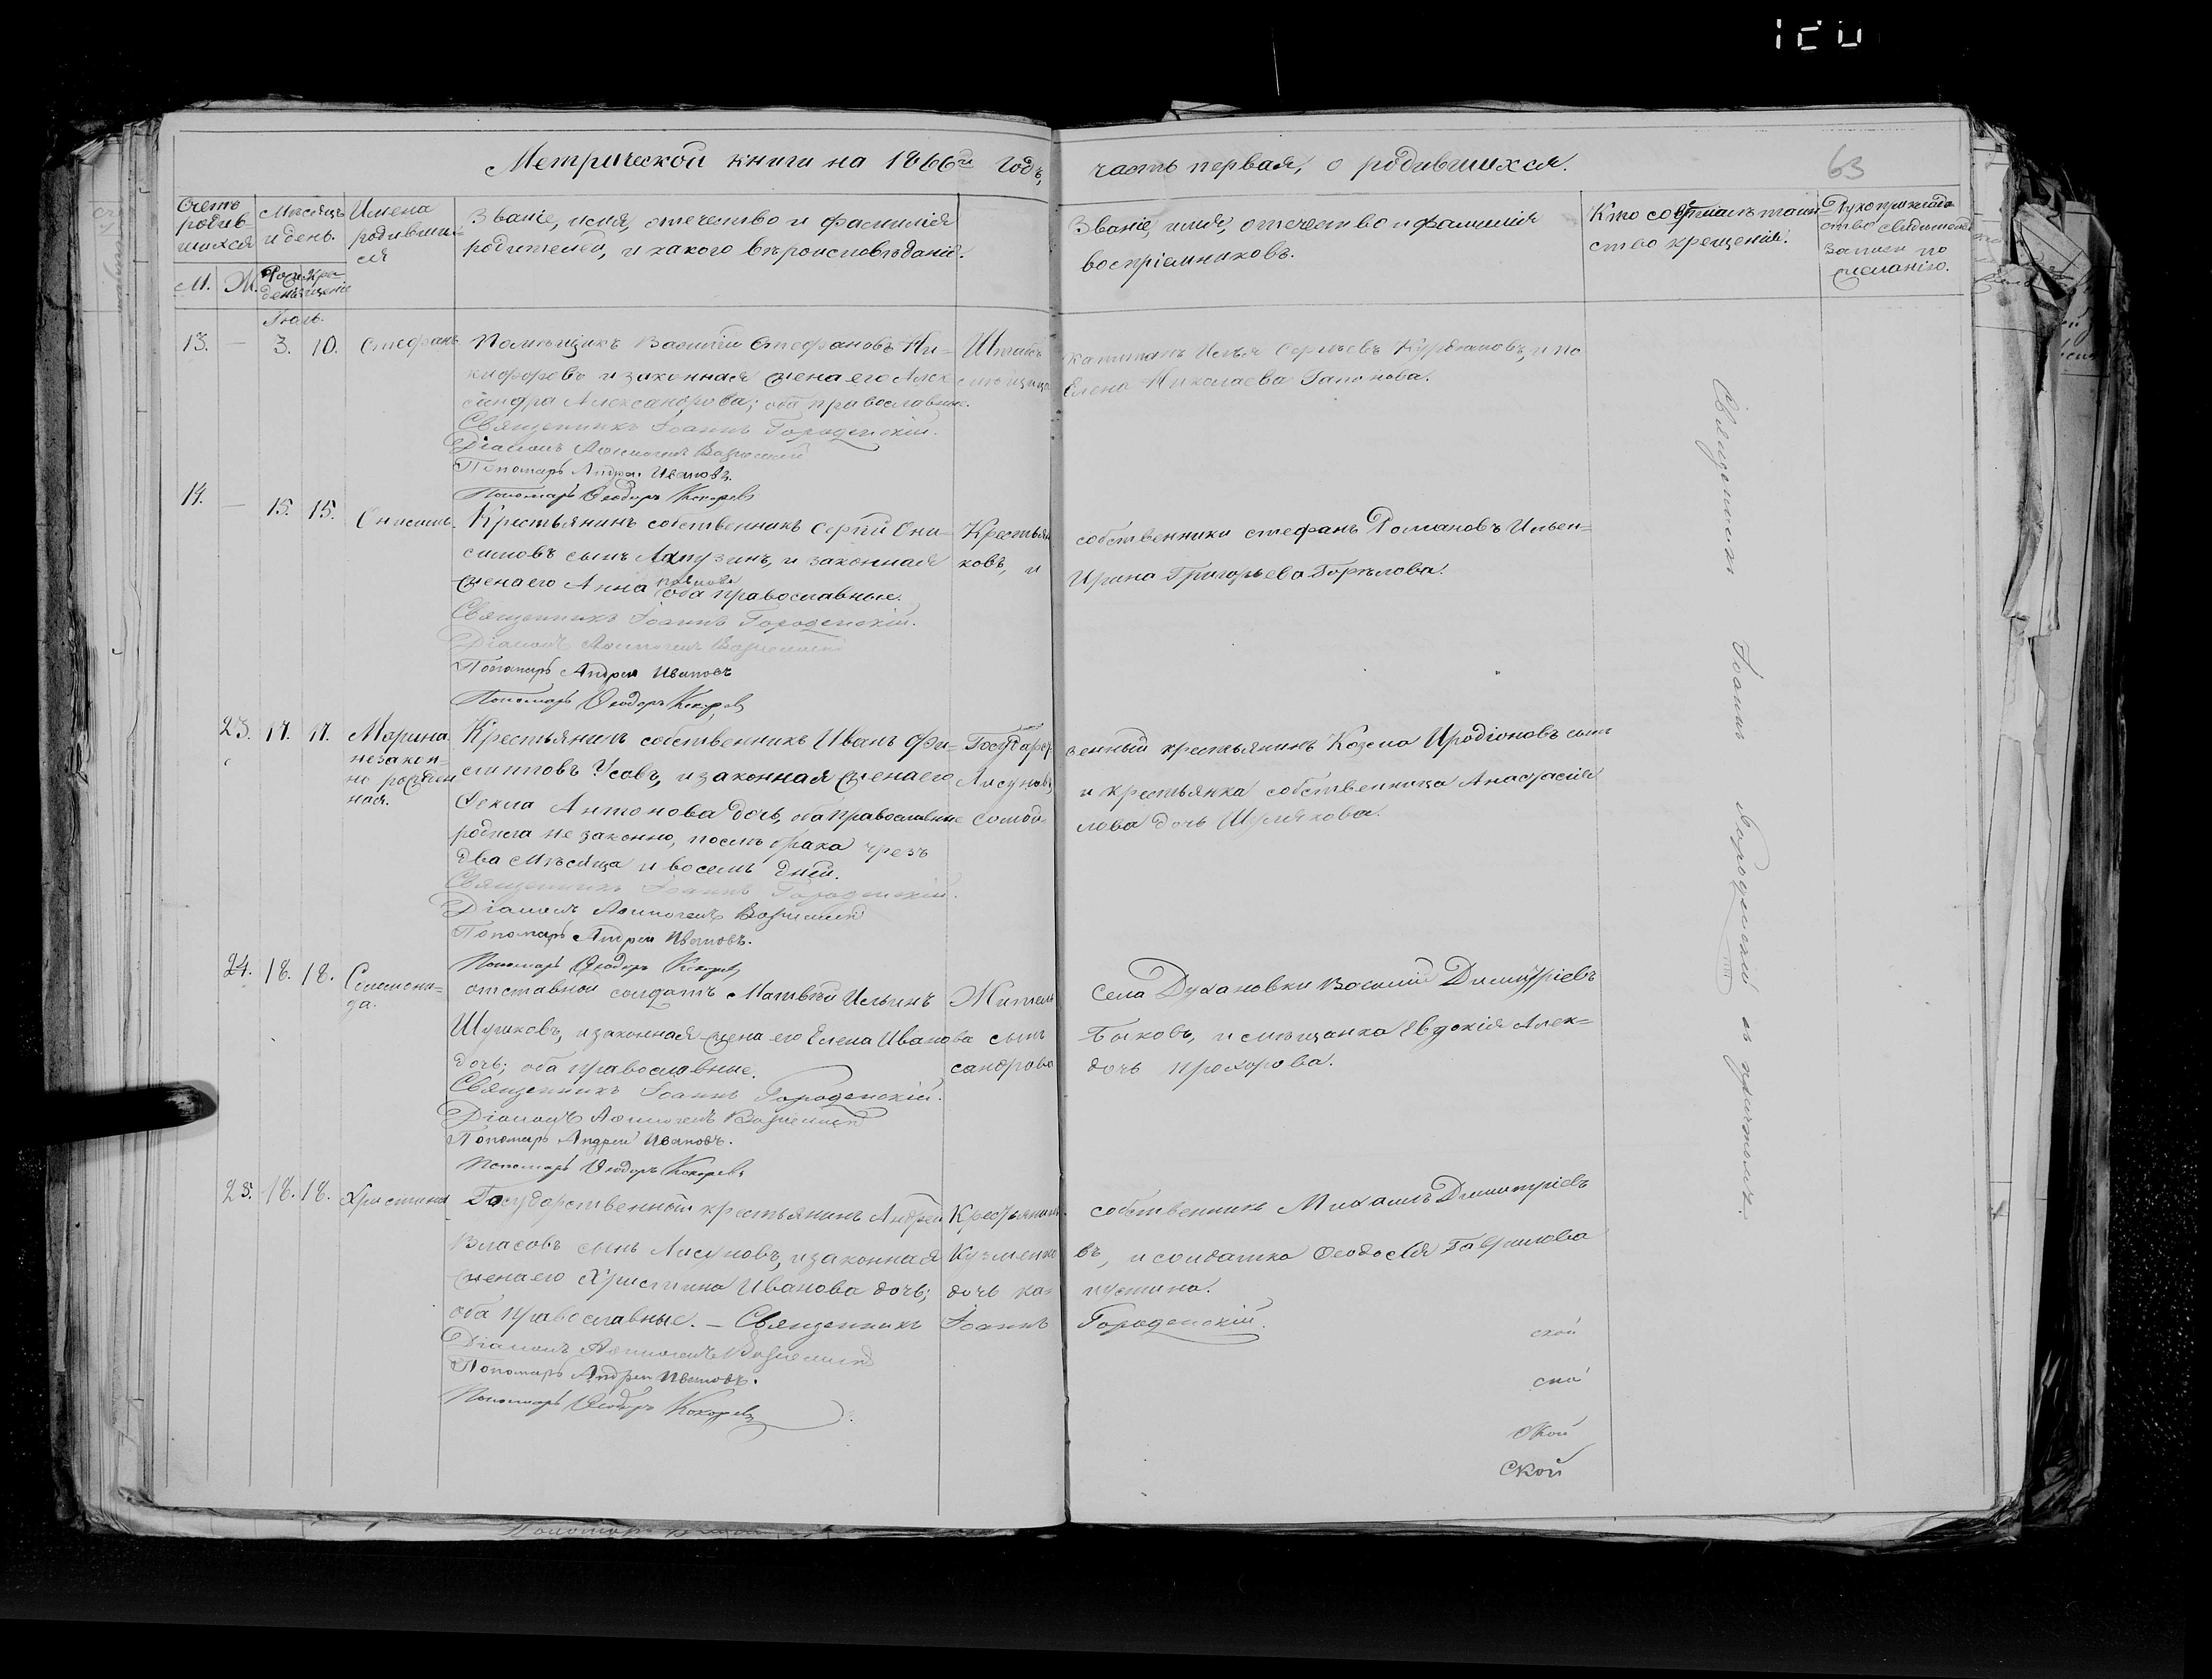 Метрической книги на 1866й годъ, часть первая, о родившихся.
63
Счетъ родив-шихся
М. Ж.
Мѣсяцъ и день.
Рож-денія Кре-щенія
Имена родивши-ся
Званіе, имя, отечество и фамилія
родителей, и какого вѣроисповѣданія.
Званіе, имя, отечество и фамилія
воспріемниковъ.
Кто совершалъ таин-
ство крещенія.
Рукоприклада-
ство свидѣтелей
записи по
желанію.
Іюль.
13. — 3. 10. Стефанъ
Помѣщикъ Василій Стефановъ Ни-
кифоровъ и законная жена его Алек-
сандра Александрова; оба православные.
Священникъ Іоаннъ Городенскій.
Діаконъ
Пономарь Андрей Ивановъ.
Пономарь Ѳеодоръ Кокоревъ
Штабсъ капитанъ Илья Сергѣевъ Курдюмовъ, и по-
мѣщица Елена Николаева Гапонова.
14. — 15. 15. Онисимъ.
Крестьянинъ собственникъ Сергій Они-
симовъ сынъ Лапузинъ, и законная
жена его Анна оба православные.
Священникъ Іоаннъ Городенскій.
Діаконъ
Пономарь Андрей Ивановъ
Пономарь Ѳеодоръ Кокоревъ
Крестьяне собственники Стефанъ Романовъ Ильен-
ковъ, и Ирина Григорьева Горѣлова.
23. 17. 17. Марина
незакон-
но рожден
ная.
Крестьянинъ собственникъ Иванъ Фи-
липповъ Усовъ, и законная жена его
Ѳекла Антонова дочь, оба православные
родила не законно, послѣ брака чрезъ
два мѣсяца и восемь дней.
Священникъ Іоаннъ Городенскій.
Діаконъ
Пономарь Андрей Ивановъ.
Пономарь Ѳеодоръ Кокоревъ
Государственный крестьянинъ Козма Иродіоновъ сынъ
Лисуновъ, и крестьянка собственница Анастасія
дочь Шумякова.
24. 18. 18. Соломони-
да.
отставной солдатъ Матвѣй Ильинъ
Шушковъ, и законная жена его Елена Иванова
дочь; оба православные.
Священникъ Іоаннъ Городенскій.
Діаконъ
Пономарь Андрей Ивановъ.
Пономарь Ѳеодоръ Кокоревъ
Житель села Духановки Василій Димитріевъ
сынъ Быковъ, и мѣщанка Евдокія Алек-
сандрова дочь Прохорова.
25. 18. 18. Христина
Государственный крестьянинъ Андрей
Власовъ сынъ Лисуновъ, и законная
жена его Христина Иванова дочь;
оба православные. — Священникъ Іоаннъ Городенскій.
Діаконъ
Пономарь Андрей Ивановъ.
Пономарь Ѳеодоръ Кокоревъ
Крестьянинъ собственникъ Михаилъ Димитріевъ
Кузменковъ, и солдатка Ѳеодосія Гаврилова
дочь Капустина.
Священникъ Іоаннъ Городенскій съ причтомъ.
ской
ской
ской